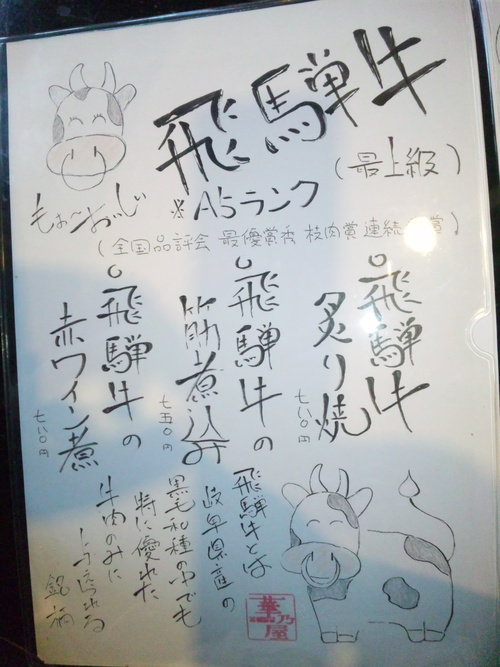 飛騨牛
(最上級)
※A5ランク
もぉ〜
(全国品評会 最優賞秀 枝肉賞 連続
○飛騨牛
炙り焼
七八〇円
○飛騨牛の
筋煮込み
七五〇円
○飛騨牛の
赤ワイン煮
七八〇円
飛騨牛とは
岐阜県産の
黒毛和種の中でも
特に優れた
牛肉のみに
与えられる
銘柄
華乃屋